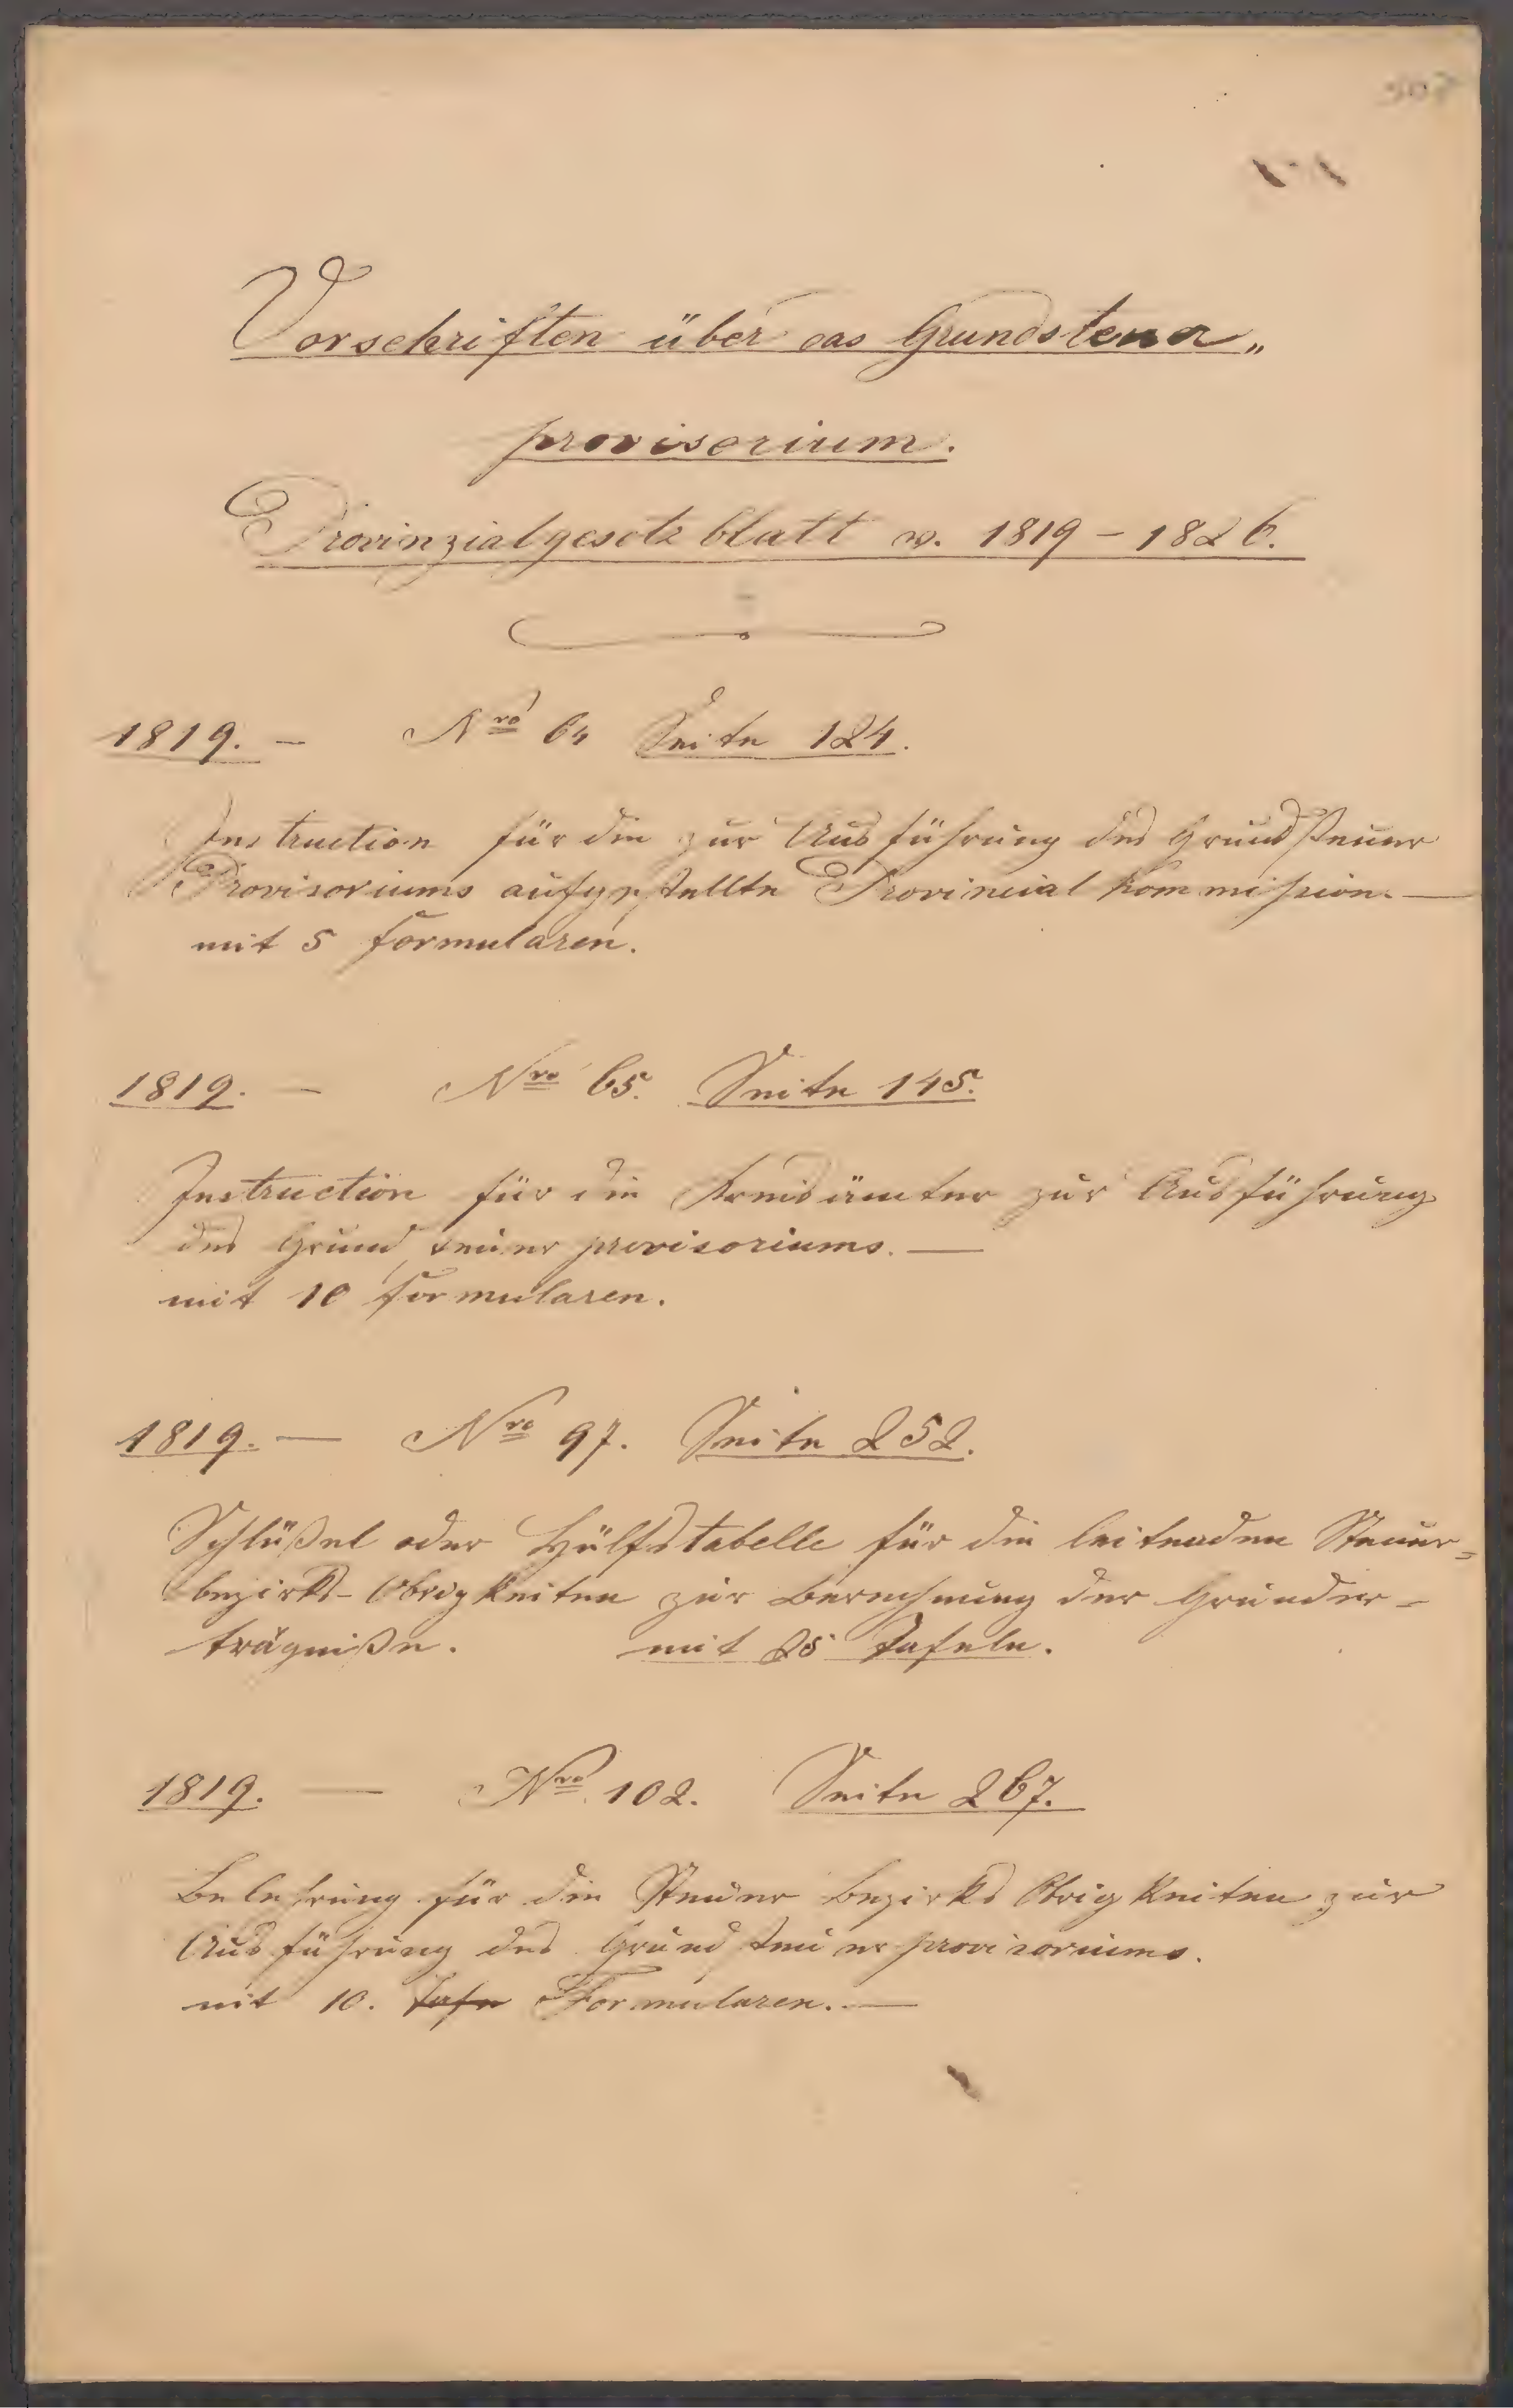 Vorschriften über das Grundsteuer„
provisorium.
Provinzialgesetzblatt v. 1819 – 1826.
1819. – Nro 64 Seite 124.
Instruction für die zur Ausführung des Grundsteuer
Provisoriums aufgestellte Provincial Kommission. —
mit 5 Formularen.
1819. – Nro 65. Seite 145.
Instruction für die Kreisämter zur Ausführung
des Grundsteuerprovisoriums. —
mit 10 Formularen.
1819. — Nro 97. Seite 252.
Schlüßel oder Hülfstabelle für die leitenden Steuer=
bezirks-Obrigkeiten zur Berechnung der Grunder=
trägniße. mit 25 Tafeln.
1819. — Nro 102. Seite 267.
Belehrung für die Steuer Bezirks Obrigkeiten zur
Ausführung des Grundsteuerprovisoriums.
mit 10. Tafe Formularen. —